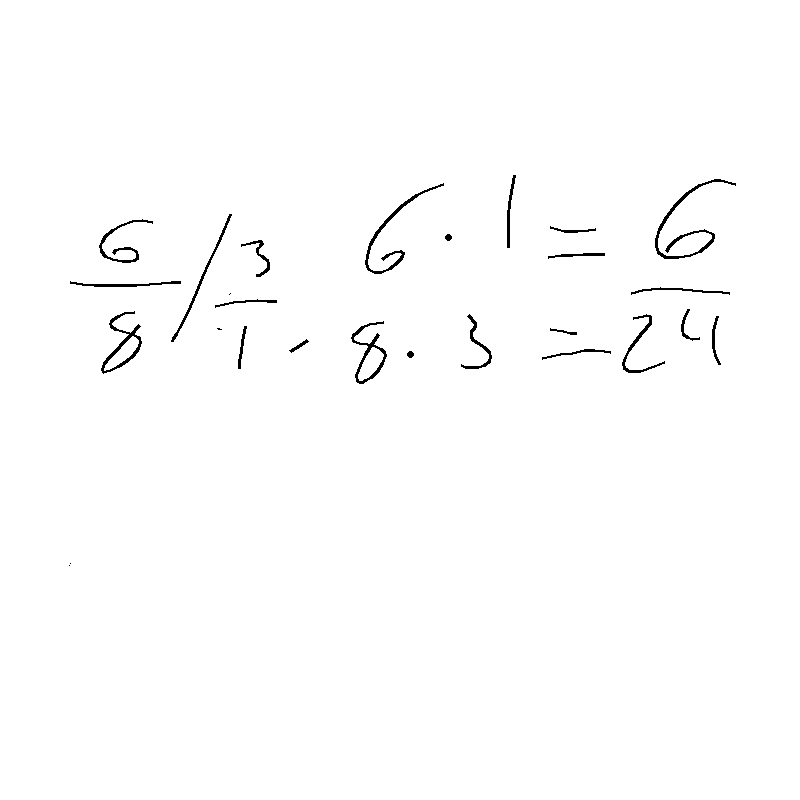 6/8 / 3/1 - 6 · 1 = 6
8 · 3 = 24